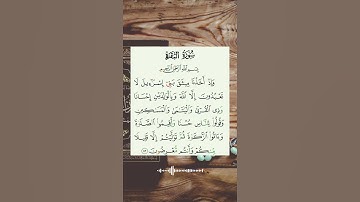 سُورَةُ البَقَرَةِ
بِسْمِ اللَّهِ الرَّحْمَٰنِ الرَّحِيمِ
وَإِذْ أَخَذْنَا مِيثَٰقَ بَنِيٓ إِسْرَٰٓءِيلَ لَا
تَعْبُدُونَ إِلَّا ٱللَّهَ وَبِٱلْوَٰلِدَيْنِ إِحْسَانًا
وَذِي ٱلْقُرْبَىٰ وَٱلْيَتَٰمَىٰ وَٱلْمَسَٰكِينِ
وَقُولُوا۟ لِلنَّاسِ حُسْنًا وَأَقِيمُوا۟ ٱلصَّلَوٰةَ
وَءَاتُوا۟ ٱلزَّكَوٰةَ ثُمَّ تَوَلَّيْتُمْ إِلَّا قَلِيلًا
مِّنكُمْ وَأَنتُم مُّعْرِضُونَ